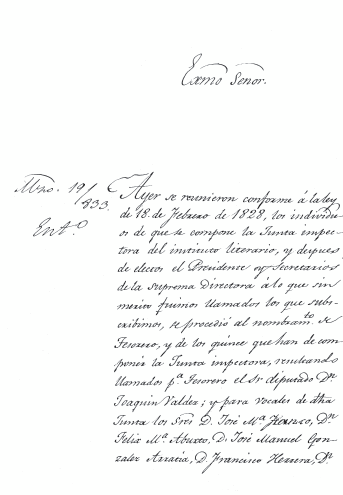 Exmo Señor.
Mzo. 19/833.
Entº
Ayer se reunieron conforme á la ley
de 18 de Febrero de 1828, los individu-
os de que se compone la Junta inspec-
tora del instituto literario, y despues
de electos el Presidente y Secretarios
de la suprema Directora á lo que sin
merito fuimos llamados los que subs-
cribimos, se procedió al nombramto. de
Tesorero, y de los quince que han de com-
poner la Junta inspectora, resultando
llamados pa. Tesorero el Sr diputado Dn.
Joaquin Valdez; y para vocales de dha
Junta los Sres D. José Ma. Dn.
Felix Ma. Aburto, D. José Manuel Gon-
zalez Arratia, D. Francisco Herrera, Dn.